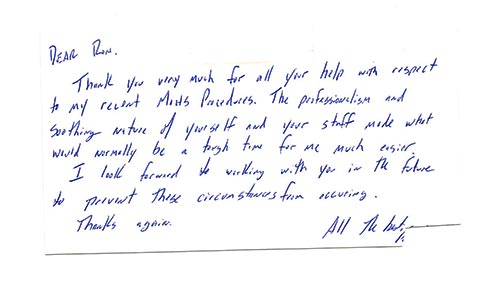 Dear Ron.
Thank you very much for all your help with respect
to my recent Mohs Procedures. The professionalism and
soothing nature of yourself and your staff made what
would normally be a tough time for me much easier.
I look forward to working with you in the future
to prevent these circumstances from occuring.
Thanks again.
All The best,